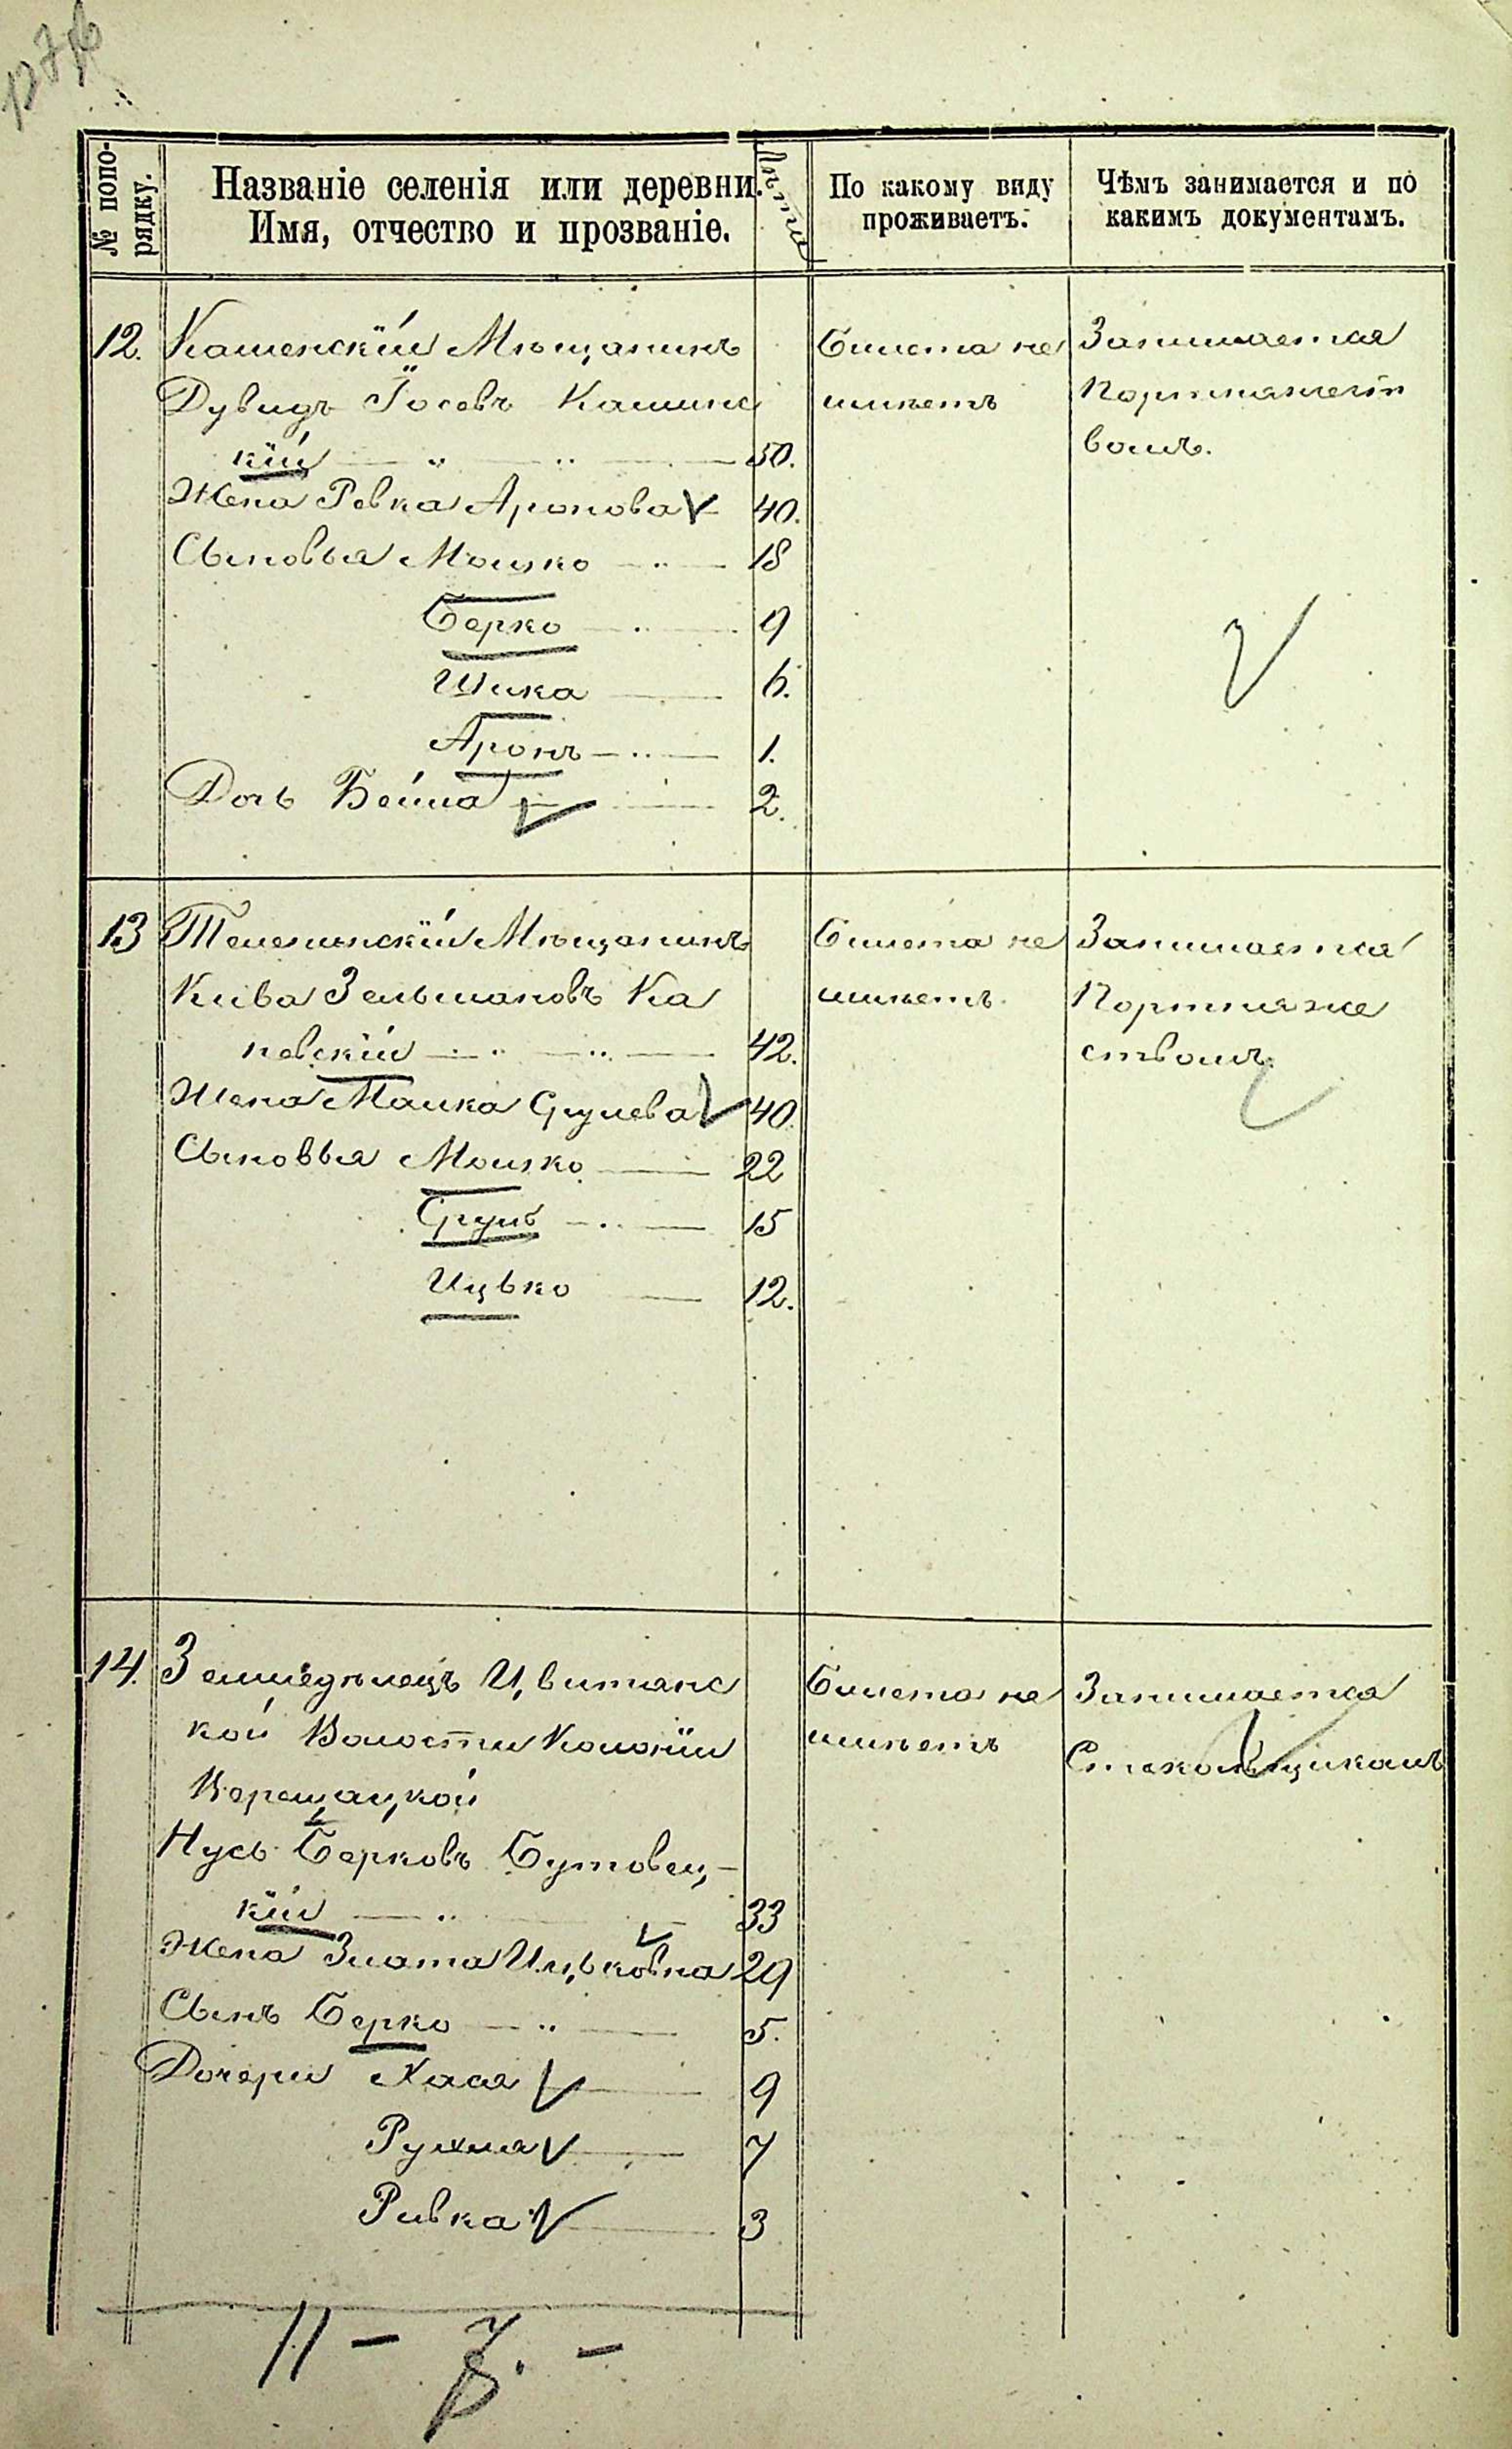 № попо-
рядку.
Названіе селенія или деревни.
Имя, отчество и прозваніе.
Лѣта
По какому виду
проживаетъ.
Чѣмъ занимается и по
какимъ документамъ.
12.
Каменскій Мѣщанинъ
Дувидъ Іосевъ Каминс
кій 50.
Жена Ревка Аронова 40.
Сыновья Мошко 18
Берко 9
Шика 6.
Аронъ 1.
Дочь Бейла 2.
Билета не
имѣетъ
Занимается
Портняжест
вомъ.
13
Мѣщанинъ
Кива Зельмановъ Ка
невскій 42.
Жена Малка Срулева 40.
Сыновья Мошко 22
Сруль 15
Ицько 12.
Билета не
имѣетъ
Занимается
Портняже
ствомъ
14.
Земледѣлецъ Цвитянс
кой Волости Колоніи
Верещацкой
Нусь Берковъ Бутовец-
кій 33
Жена Злата Ицьковна 29
Сынъ Берко 5.
Дочери Хася 9
Рухля 7
Ривка 3
Билета не
имѣетъ
Занимается
Стекольщикомъ
11 - 7. -